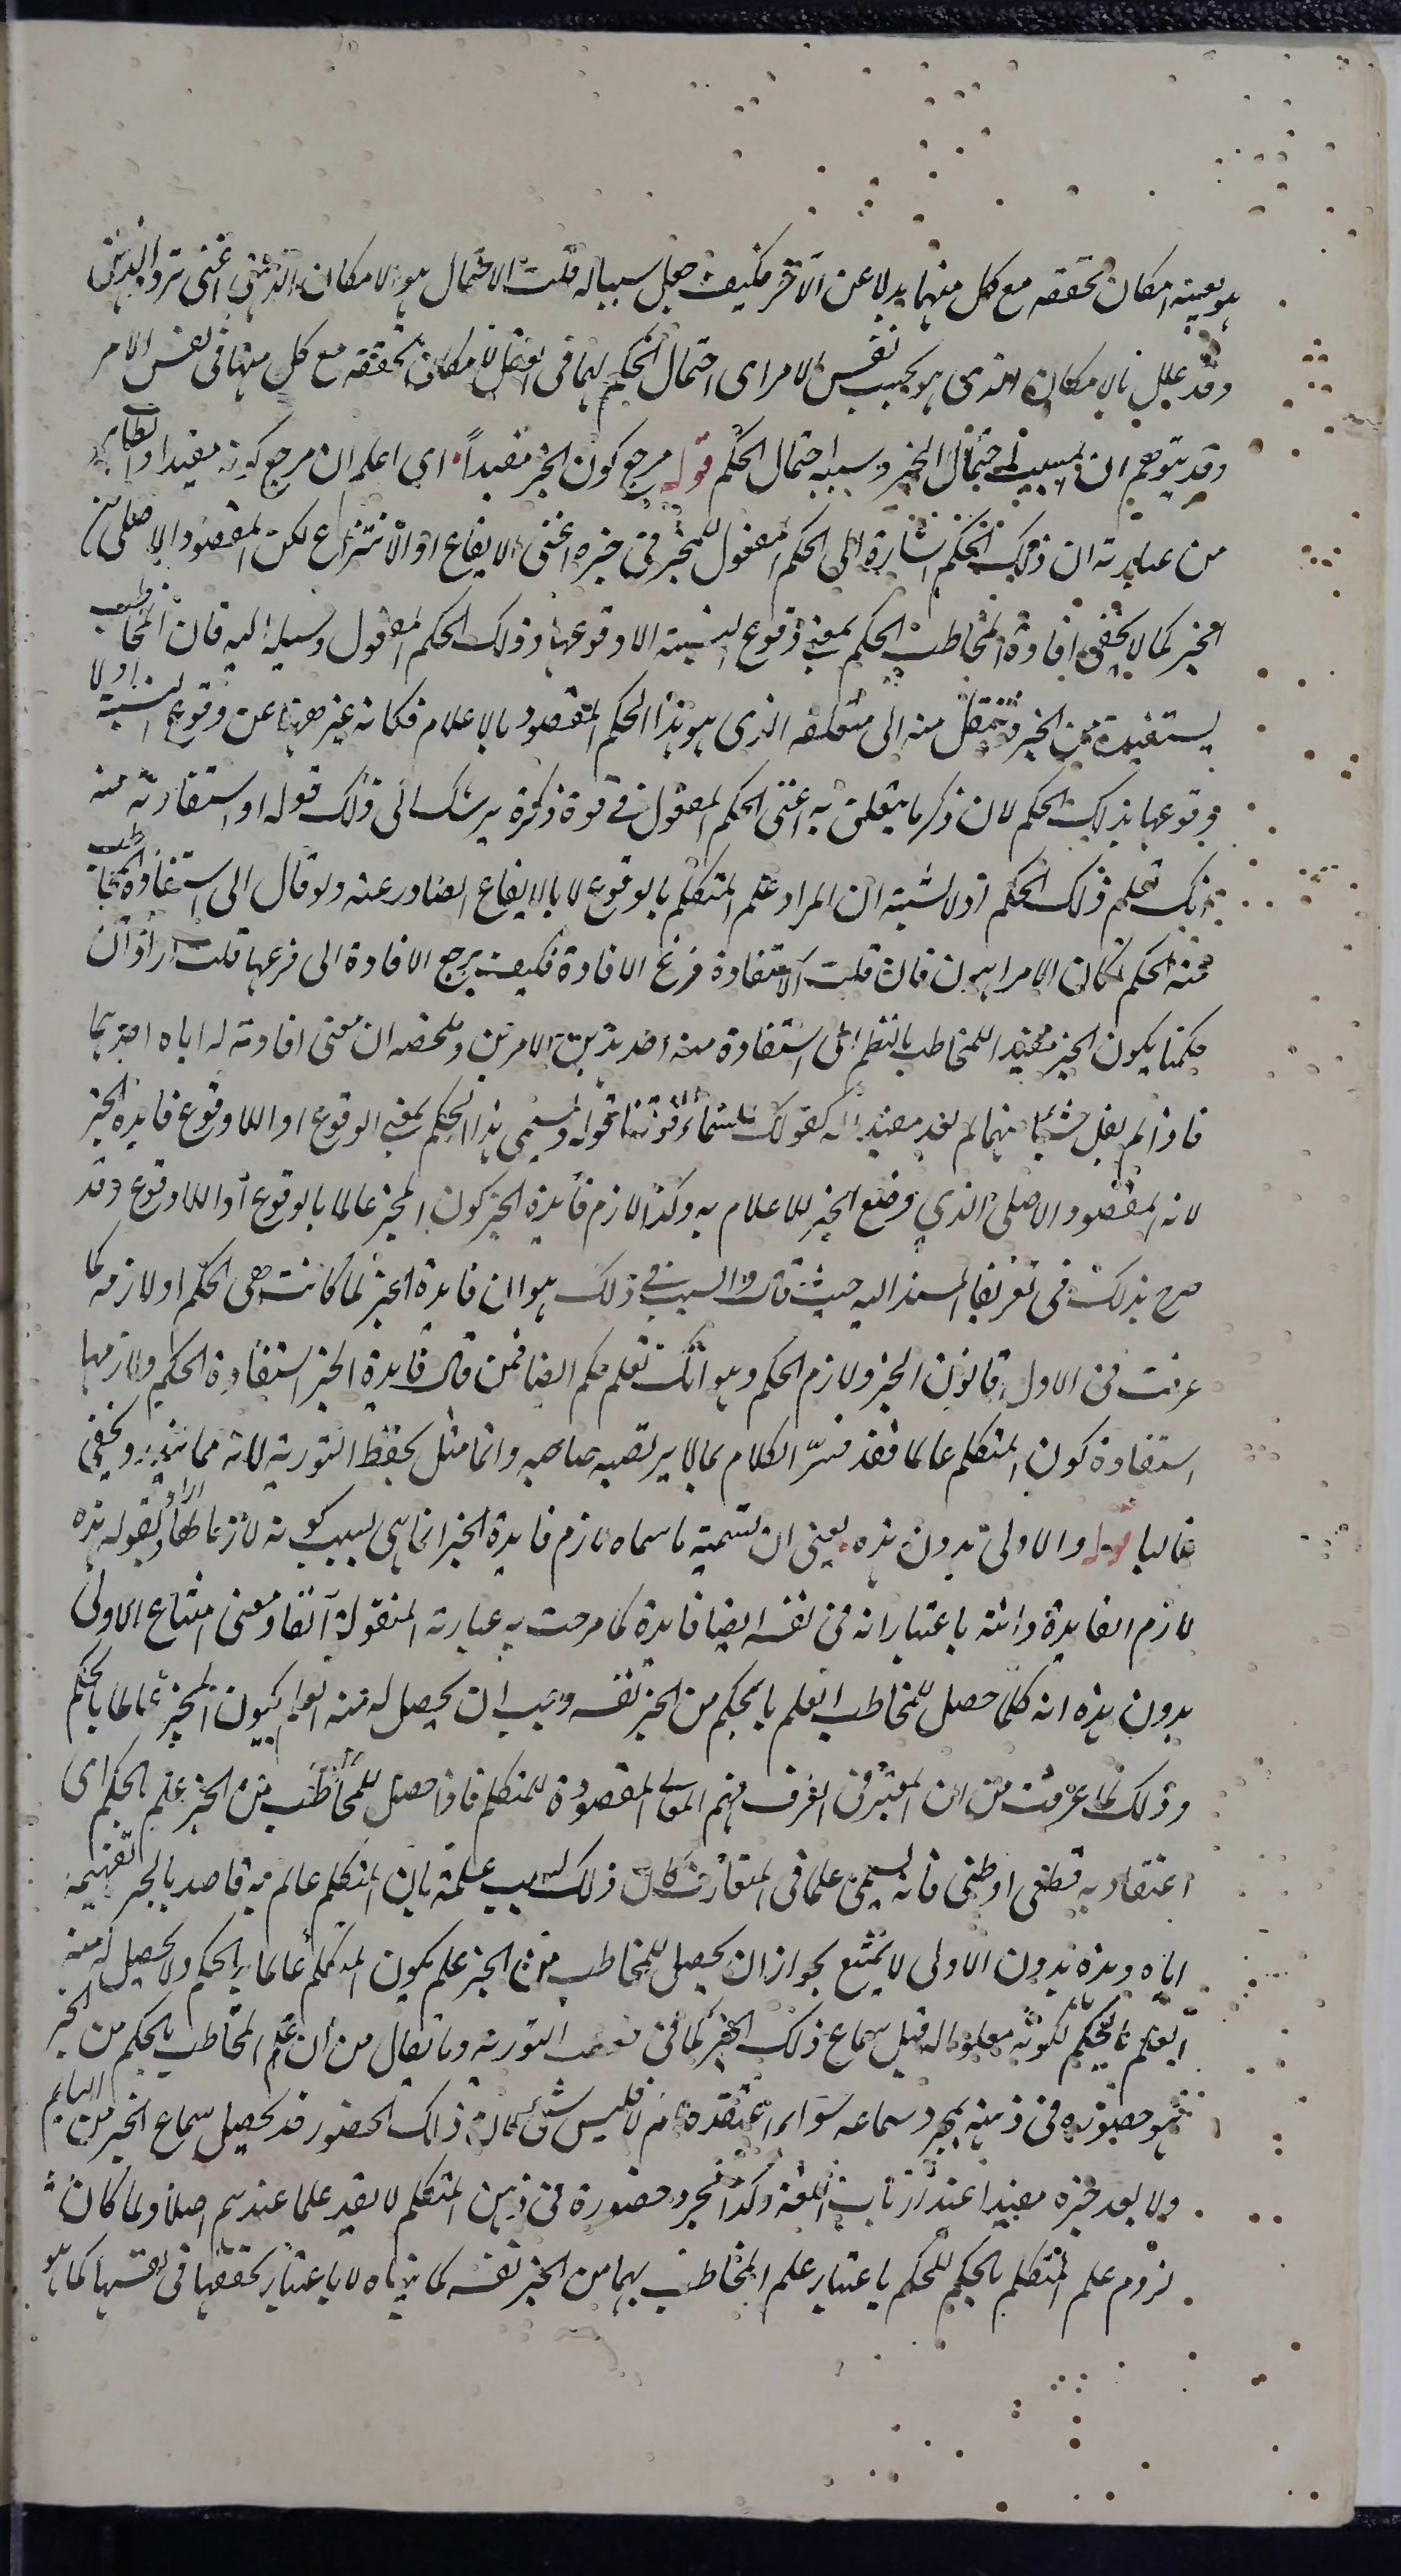 هو بعينه امكان تحققه مع كل منهما بدلا عن الآخر فكيف جعل سببا له قلت الاحتمال هو الامكان الذهني اعنى تردد الذهن
وقد علل بالامكان الذى هو بحسب نفس الامر اى احتمال الحكم لهما فى العقل لامكان تحققه مع كل منهما فى نفس الامر
وقد يتوهم ان المسبب احتمال الخبر وسببه احتمال الحكم قوله مرجع كون الخبر مفيداً اى اعلم ان مرجع كونه مفيدا والظاهر
من عبارته ان ذلك الحكم اشارة الى الحكم المفعول للمخبر فى خبره اعنى الايقاع او الانتزاع لكن المقصود الاصلى من
الخبر كما لا يخفى افادة المخاطب الحكم بمعنى وقوع النسبة او لا وقوعها وذلك الحكم المفعول وسيلة اليه فان المخاطب
يستفيده من الخبر فينتقل منه الى متعلقه الذى هو هذا الحكم المقصود بالاعلام فكانه عبر ههنا عن وقوع النسبة او لا
وقوعها بذلك الحكم لان ذكر ما يتعلق به اعنى الحكم المفعول فى قوة ذكره يرشدك الى ذلك قوله او استفادته منه
انك تعلم ذلك الحكم اذ لا شبهة ان المراد علم المتكلم بالوقوع لا بالايقاع الصادر عنه ولو قال الى استفادة المخاطب
منه الحكم لكان الامر اهون فان قلت الاستفادة فرع الافادة فكيف يرجع الافادة الى فرعها قلت اراد ان
حكمنا بكون الخبر مفيدا للمخاطب بالنظر الى استفادة منه احد هذين الامرين وملخصه ان معنى افادته له اياه احدهما
فاذا لم يفد شيئا منهما لم يعد مفيدا له كقولك السماء فوقنا قوله ويسمى هذا اى الحكم بمعنى الوقوع او اللاوقوع فايدة الخبر
لانه المقصود الاصلى الذي وضع الخبر للاعلام به وكذا لازم فايدة الخبر كون المخبر عالما بالوقوع او اللاوقوع وقد
صرح بذلك فى تعريف المسند اليه حيث قال والسبب فى ذلك هو ان فايدة الخبر لما كانت هى الحكم او لازمه كما
عرفت فى الاول قانون الخبر ولازم الحكم وهو انك تعلم حكم ايضا فمن قال فايدة الخبر استفادة الحكم ولازمها
استفادة كون المتكلم عالما فقد فسّر الكلام بما لا يرتضيه صاحبه وانما مثل بحفظ التورية لانه مما يخفى
غالبا قوله والاولى بدون هذه يعنى ان تسمية ما سماه لازم فايدة الخبر انما هى بسبب كونه لازما لها واراد بقوله هذه
لازم الفايدة وانثه باعتبار انه فى نفسه ايضا فايدة كما مرحت به عبارته المنقولة آنفا ومعنى امتناع الاولى
بدون هذه انه كلما حصل للمخاطب العلم بالحكم من الخبر نفسه وجب ان يحصل له منه العلم بكون المخبر عالما بالحكم
وذلك لما عرفت من ان المعتبر فى العرف فهم المعانى المقصودة للمتكلم فاذا حصل للمخاطب من الخبر علم بالحكم اى
اعتقاد به قطعى او ظنى فانه يسمى علما فى المتعارف كان ذلك بسبب علمه بان المتكلم عالم به قاصد بالخبر تفهيمه
اياه وهذه بدون الاولى لا يمتنع لجواز ان يحصل للمخاطب من الخبر علم بكون المتكلم عالما بالحكم ولا يحصل له منه
العلم بالحكم لكونه معلوما له قبل سماع ذلك الخبر كما فى حفظ التورية وما يقال من ان علم المخاطب بالحكم من الخبر
هو حضوره فى ذهنه بمجرد سماعه سواء اعتقده ام لا فليس بشئ لان ذلك الحضور قد يحصل بسماع الخبر من النايم
ولا يعد خبره مفيدا عند ارباب اللغة وكذا مجرد حضوره فى ذهن المتكلم لا يعد علما عندهم اصلا ولما كان
لزوم علم المتكلم بالحكم للحكم باعتبار علم المخاطب بهما من الخبر نفسه كما بيناه لا باعتبار تحققها فى نفسها كما هو